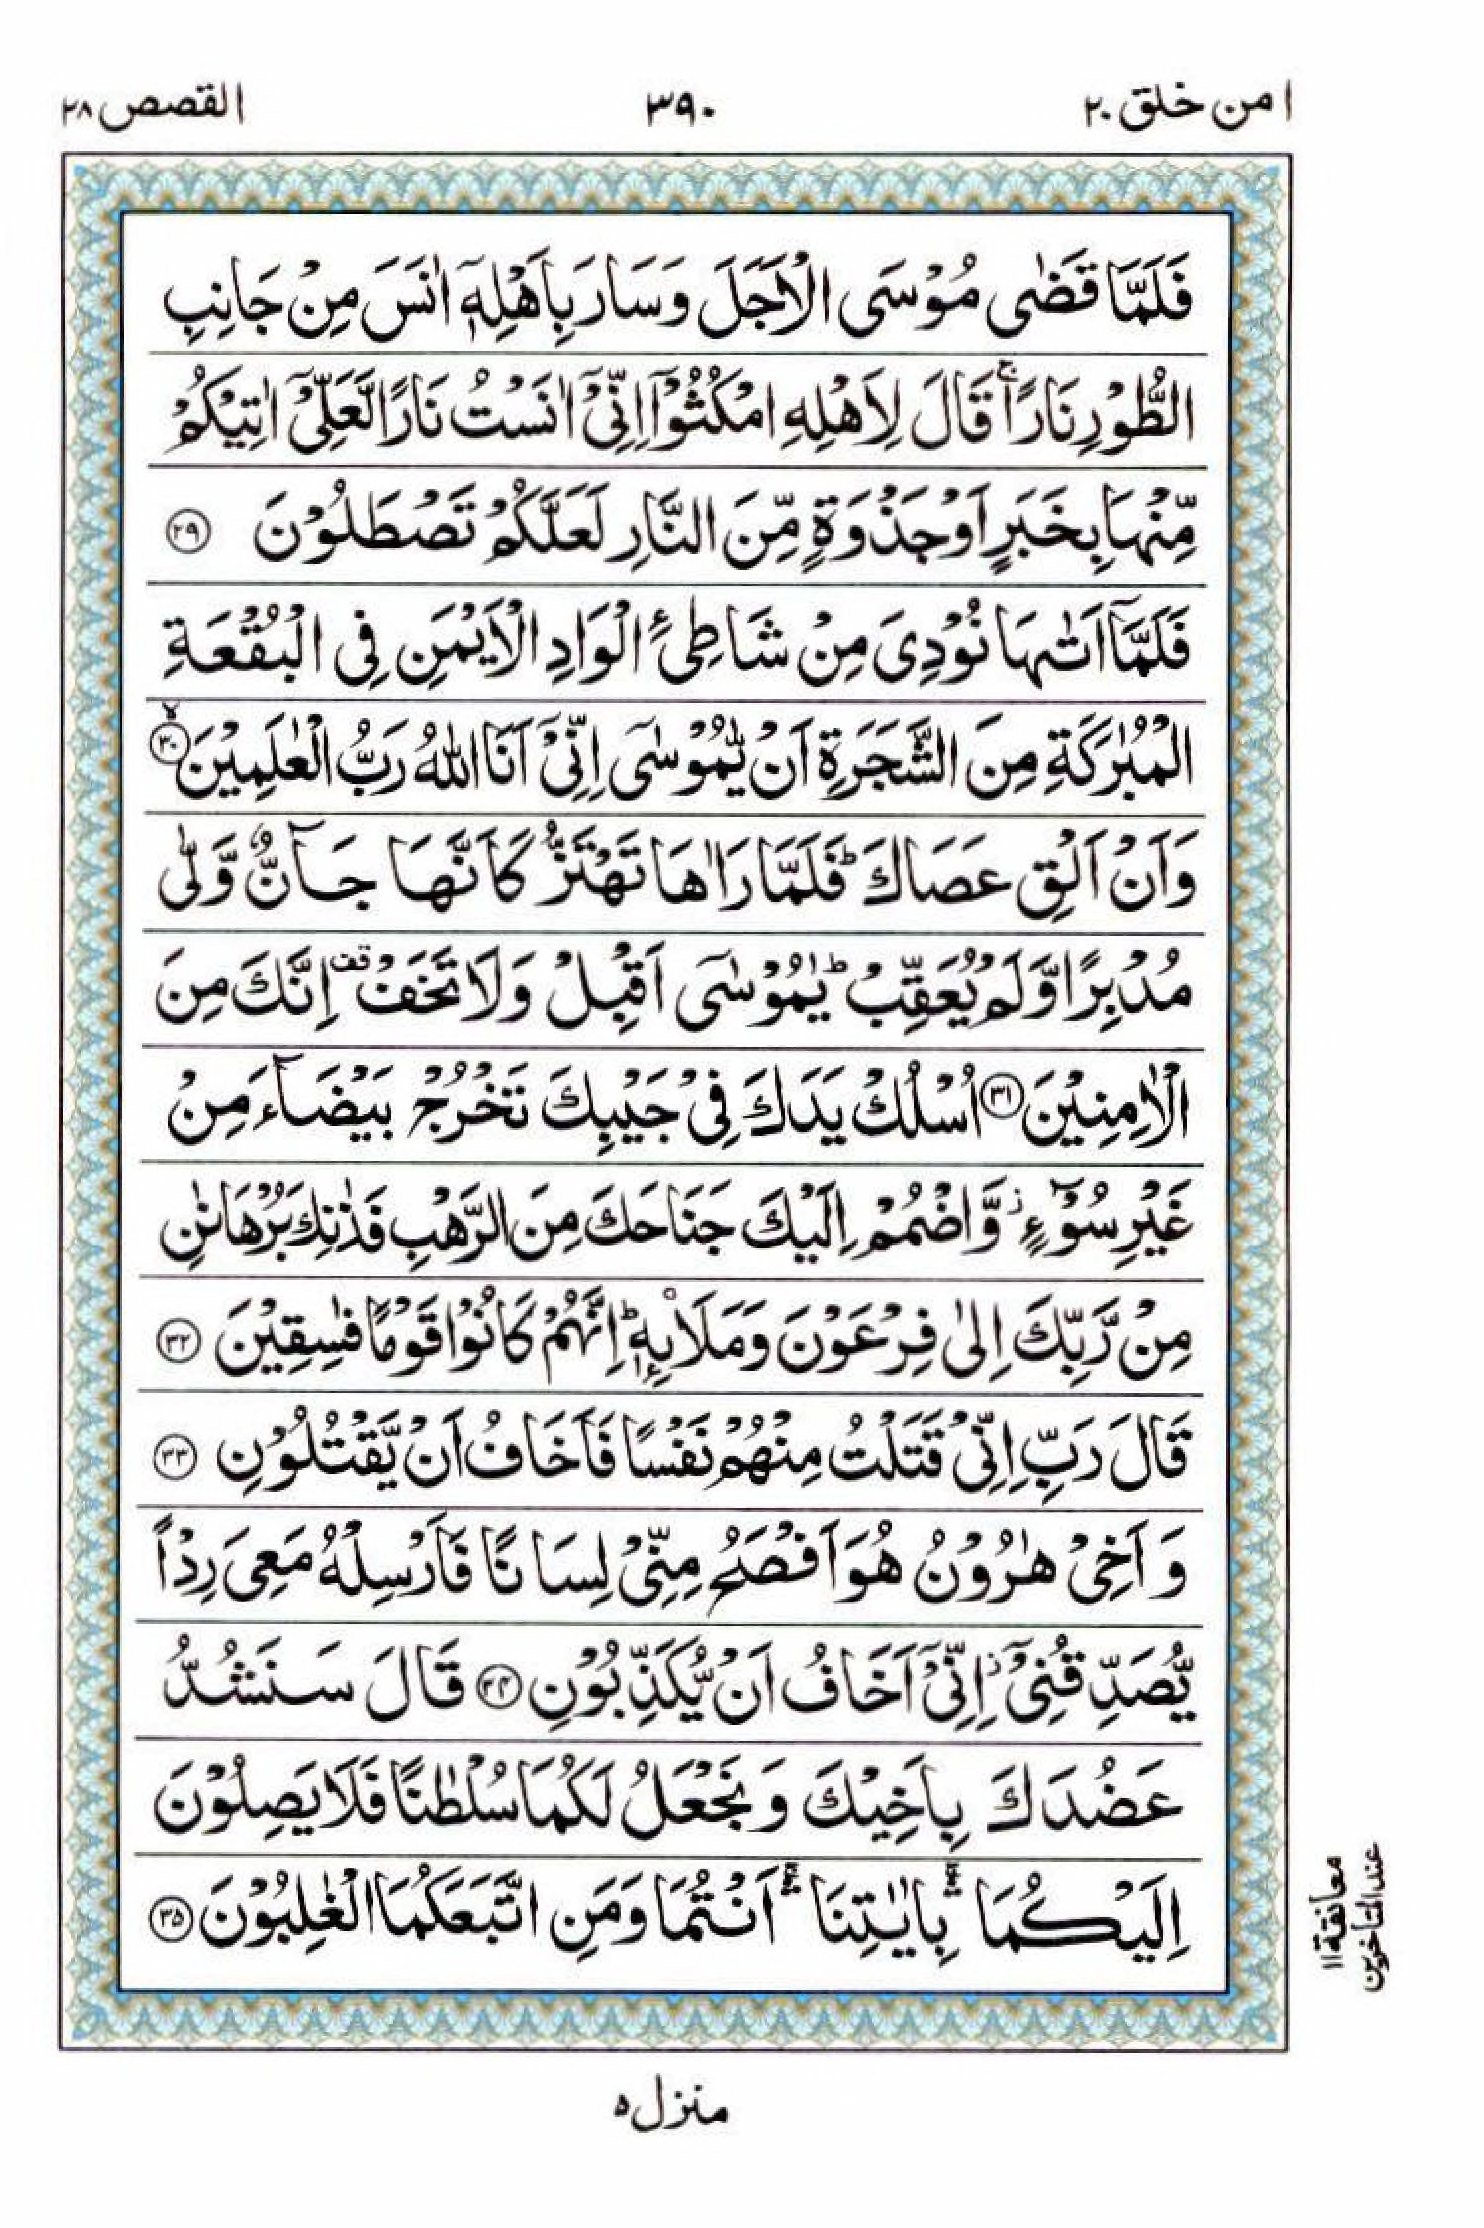 امن خلق ٢٠
٣٩٠
القصص ٢٨
فَلَمَّا قَضٰى مُوْسَى الْاَجَلَ وَسَارَ بِاَهْلِهٖۤ اٰنَسَ مِنْ جَانِبِ
الطُّوْرِ نَارًا ۚ قَالَ لِاَهْلِهِ امْكُثُوْۤا اِنِّیْۤ اٰنَسْتُ نَارًا لَّعَلِّیْۤ اٰتِیْكُمْ
مِّنْهَا بِخَبَرٍ اَوْ جَذْوَةٍ مِّنَ النَّارِ لَعَلَّكُمْ تَصْطَلُوْنَ ٢٩
فَلَمَّاۤ اَتٰىهَا نُوْدِیَ مِنْ شَاطِئِ الْوَادِ الْاَیْمَنِ فِی الْبُقْعَةِ
الْمُبٰرَكَةِ مِنَ الشَّجَرَةِ اَنْ یّٰمُوْسٰۤى اِنِّیْۤ اَنَا اللّٰهُ رَبُّ الْعٰلَمِیْنَ ٣٠ ۙ
وَاَنْ اَلْقِ عَصَاكَ ؕ فَلَمَّا رَاٰهَا تَهْتَزُّ كَاَنَّهَا جَآنٌّ وَّلّٰى
مُدْبِرًا وَّلَمْ یُعَقِّبْ ؕ یٰمُوْسٰۤى اَقْبِلْ وَلَا تَخَفْ ۫ اِنَّكَ مِنَ
الْاٰمِنِیْنَ ٣١ اُسْلُكْ یَدَكَ فِیْ جَیْبِكَ تَخْرُجْ بَیْضَآءَ مِنْ
غَیْرِ سُوْٓءٍ ؗ وَّاضْمُمْ اِلَیْكَ جَنَاحَكَ مِنَ الرَّهْبِ فَذٰنِكَ بُرْهَانٰنِ
مِنْ رَّبِّكَ اِلٰى فِرْعَوْنَ وَمَلَا۟ىِٕهٖ ؕ اِنَّهُمْ كَانُوْا قَوْمًا فٰسِقِیْنَ ٣٢
قَالَ رَبِّ اِنِّیْ قَتَلْتُ مِنْهُمْ نَفْسًا فَاَخَافُ اَنْ یَّقْتُلُوْنِ ٣٣
وَاَخِیْ هٰرُوْنُ هُوَ اَفْصَحُ مِنِّیْ لِسَانًا فَاَرْسِلْهُ مَعِیَ رِدْاً
یُّصَدِّقُنِیْۤ ؗ اِنِّیْۤ اَخَافُ اَنْ یُّكَذِّبُوْنِ ٣٤ قَالَ سَنَشُدُّ
عَضُدَكَ بِاَخِیْكَ وَنَجْعَلُ لَكُمَا سُلْطٰنًا فَلَا یَصِلُوْنَ
اِلَیْكُمَا ۛۚ بِاٰیٰتِنَا ۛۚ اَنْتُمَا وَمَنِ اتَّبَعَكُمَا الْغٰلِبُوْنَ ٣٥
معانقة ١١
عند المتأخرين
منزل ٥